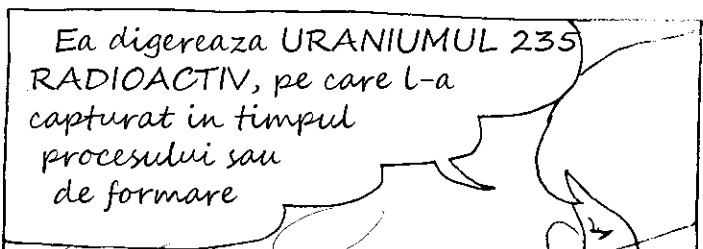 Ea digereaza URANIUMUL 235
RADIOACTIV, pe care l-a
capturat in timpul
procesului sau
de formare